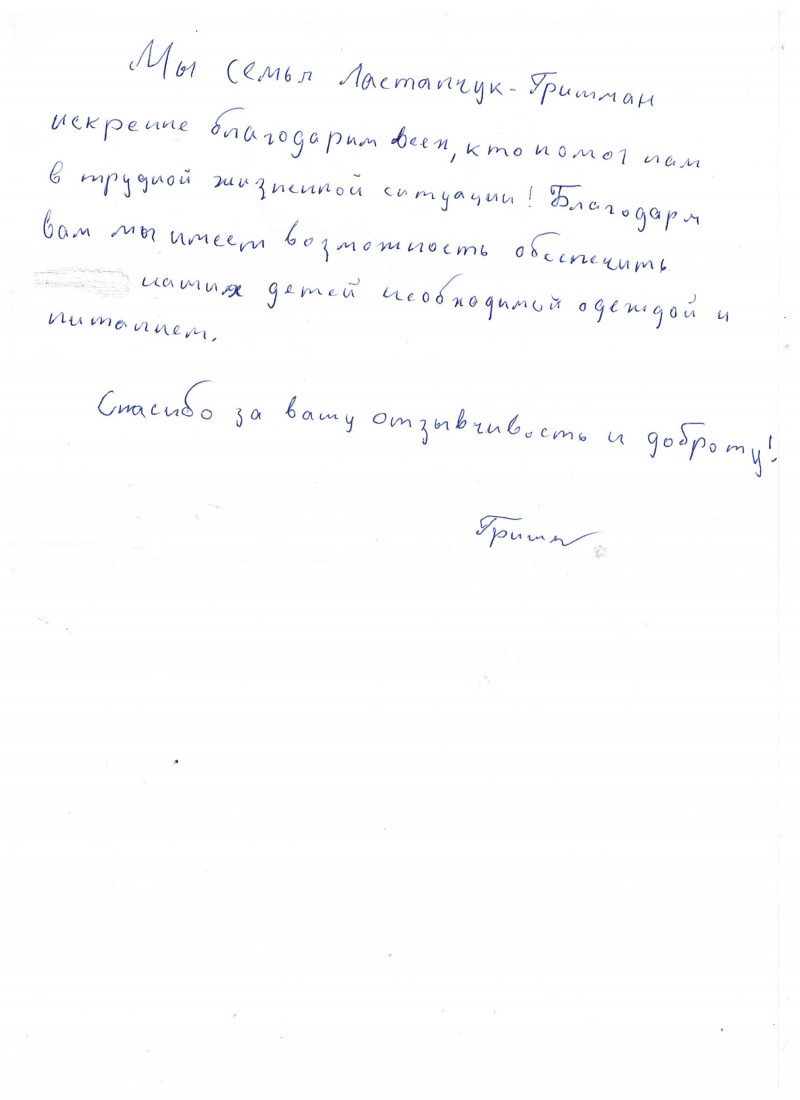 Мы семья Ластапчук-Гришман
искренне благодарим всех, кто помог нам
в трудной жизненной ситуации! Благодаря
вам мы имеем возможность обеспечить
наших детей необходимой одеждой и
питанием.
Спасибо за вашу отзывчивость и доброту!